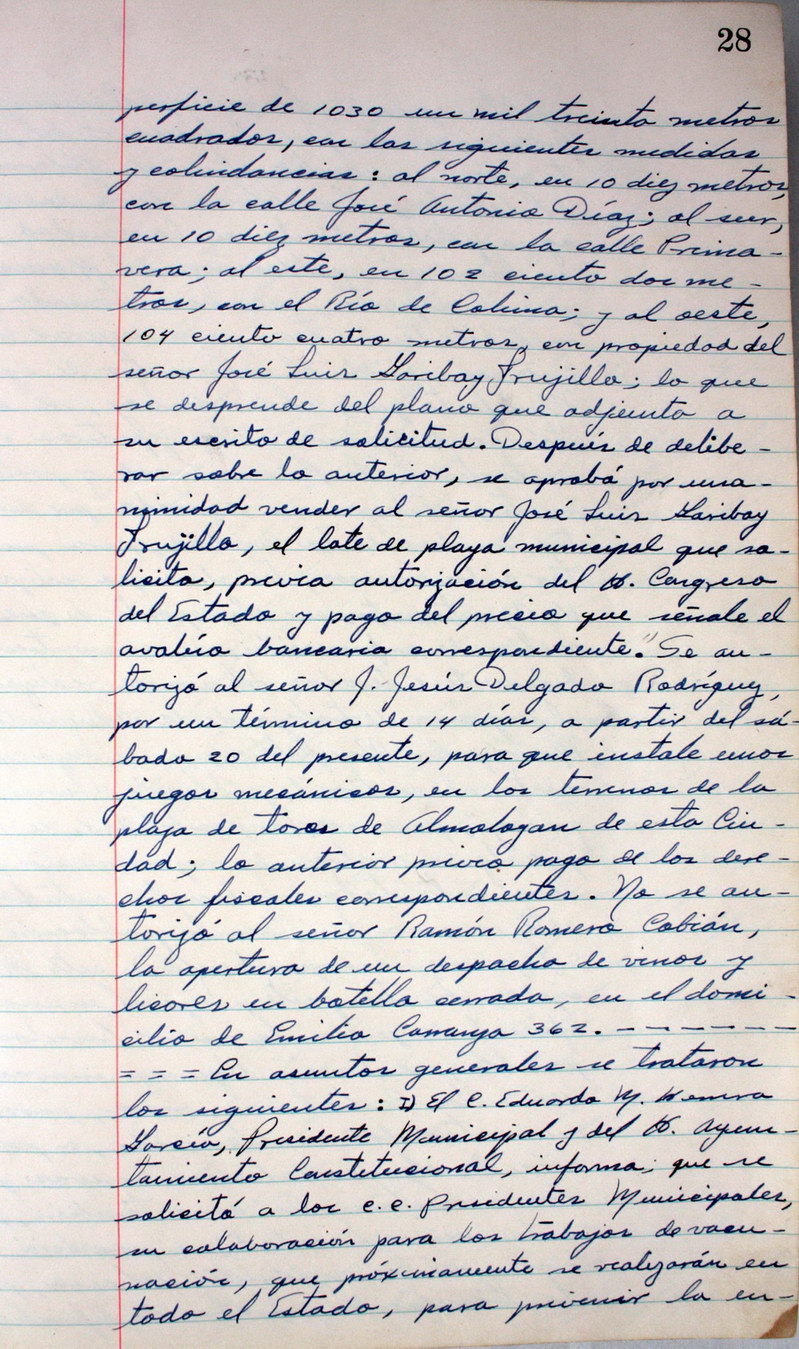 28
perficie de 1030 un mil treinta metros
cuadrados, con las siguientes medidas
y colindancias: al norte, en 10 diez metros,
con la calle José Antonio Díaz; al sur,
en 10 diez metros, con la calle Prima-
vera; al este, en 102 ciento dos me-
tros, con el Río de Colima; y al oeste,
104 ciento cuatro metros, con propiedad del
señor José Luis Garibay Trujillo; lo que
se desprende del plano que adjunta a
su escrito de solicitud. Después de delibe-
rar sobre lo anterior, se aprobó por una-
nimidad vender al señor José Luis Garibay
Trujillo, el lote de playa municipal que so-
licita, previa autorización del H. Congreso
del Estado y pago del precio que señale el
avalúo bancario correspondiente." Se au-
torizó al señor J. Jesús Delgado Rodríguez,
por un término de 14 días, a partir del sá-
bado 20 del presente, para que instale unos
juegos mecánicos, en los terrenos de la
plaza de toros de Almoloyan de esta Ciu-
dad; lo anterior previo pago de los dere-
chos fiscales correspondientes. No se au-
torizó al señor Ramón Romero Cobián,
la apertura de un despacho de vinos y
licores en botella cerrada, en el domi-
cilio de Emilio Carranza 362. - - - - - - -
= = = En asuntos generales se trataron
los siguientes: I) El C. Eduardo M. Herrera
García, Presidente Municipal y del H. Ayun-
tamiento Constitucional, informa; que se
solicitó a los C.C. Presidentes Municipales,
su colaboración para los trabajos de vacu-
nación, que próximamente se realizarán en
todo el Estado, para prevenir la en-